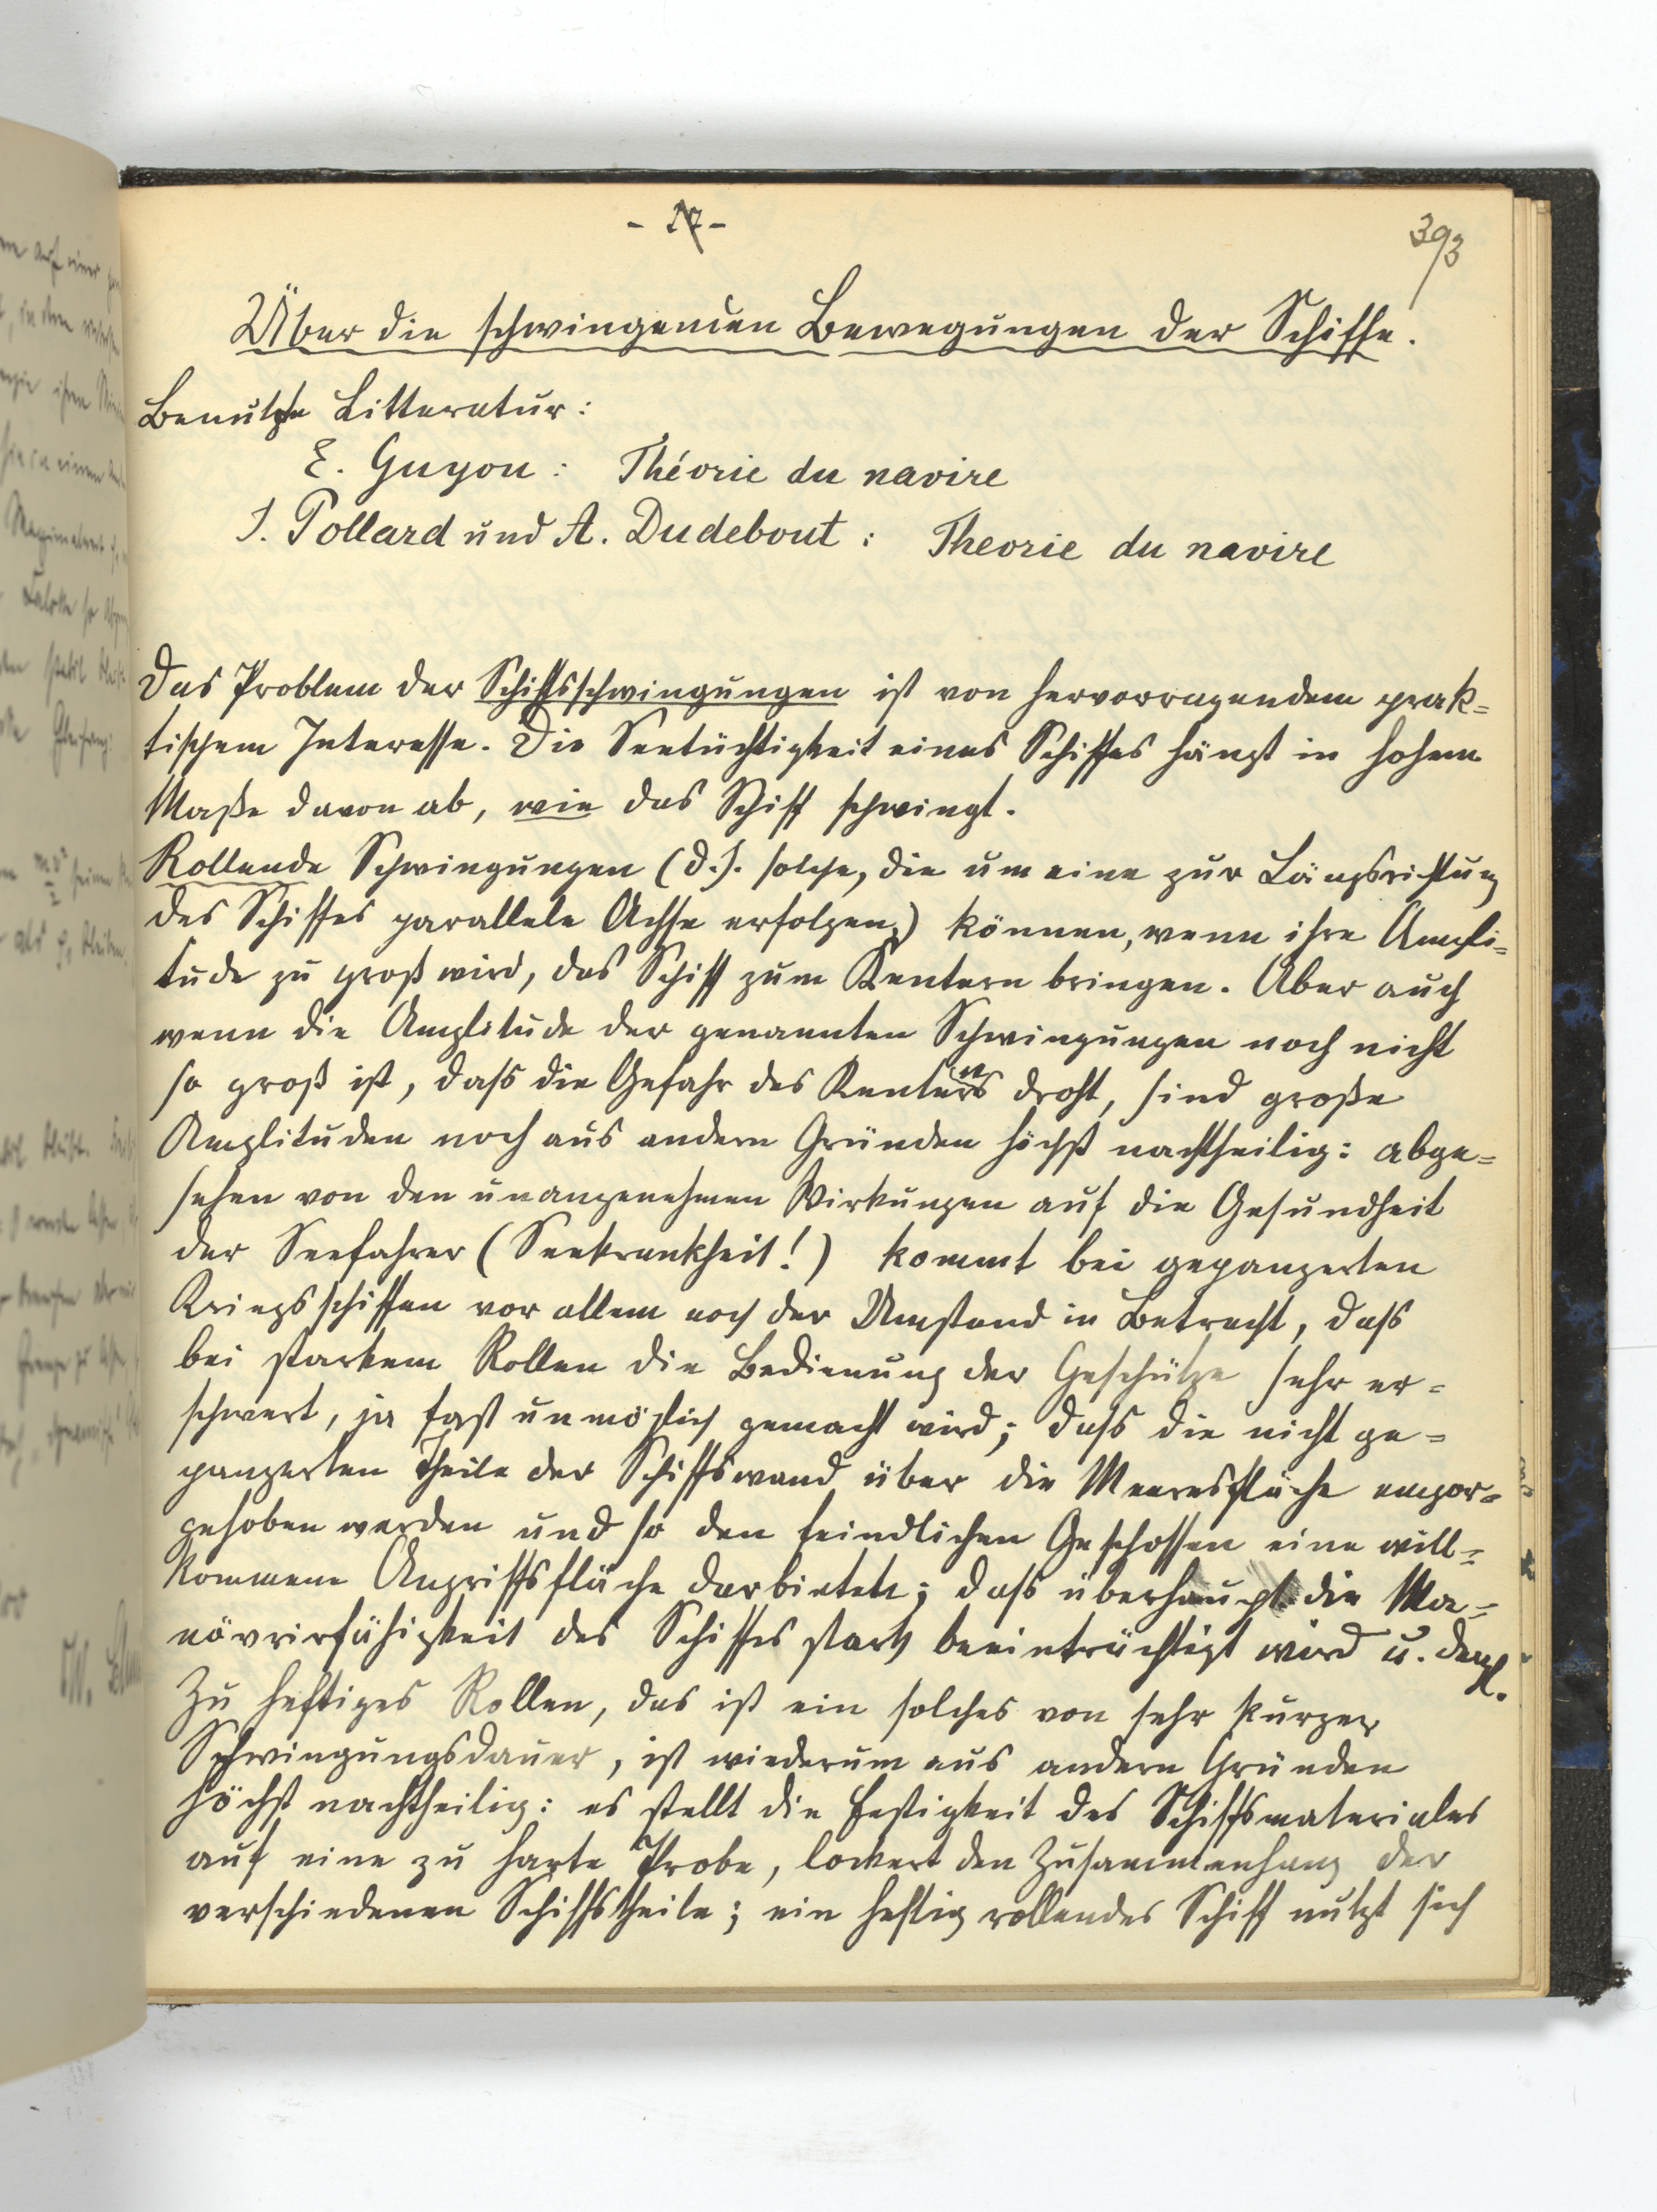 - 17 -
393
Über die schwingenden Bewegungen der Schiffe.
Benutzte Litteratur:
E. Guyou: Théorie du navire
J. Pollard und A. Dudebout: Theorie du navire
Das Problem der Schiffsschwingungen ist von hervorragendem prak=
tischem Interesse. Die Seetüchtigkeit eines Schiffes hängt in hohem
Maße davon ab, wie das Schiff schwingt.
Rollende Schwingungen (d.h. solche, die um eine zur Längsrichtung
des Schiffes parallele Achse erfolgen) können, wenn ihre Ampli=
tude zu groß wird, das Schiff zum Kentern bringen. Aber auch
wenn die Amplitude der genannten Schwingungen noch nicht
so groß ist, dass die Gefahr des Kenterns droht, sind große
Amplituden noch aus andern Gründen höchst nachtheilig: abge=
sehen von den unangenehmen Wirkungen auf die Gesundheit
der Seefahrer (Seekrankheit!) kommt bei gepanzerten
Kriegsschiffen vor allem noch der Umstand in Betracht, dass
bei starkem Rollen die Bedienung der Geschütze sehr er=
schwert, ja fast unmöglich gemacht wird; dass die nicht ge=
panzerten Theile der Schiffswand über die Meeresfläche empor=
gehoben werden und so den feindlichen Geschossen eine will=
kommene Angriffsfläche darbieten; dass überhaupt die Ma=
növrirfähigkeit des Schiffes stark beeinträchtigt wird u. dergl.
Zu heftiges Rollen, das ist ein solches von sehr kurzer
Schwingungsdauer, ist wiederum aus andern Gründen
höchst nachtheilig: es stellt die Festigkeit des Schiffsmateriales
auf eine zu harte Probe, lockert den Zusammenhang der
verschiedenen Schiffstheile; ein heftig rollendes Schiff nutzt sich